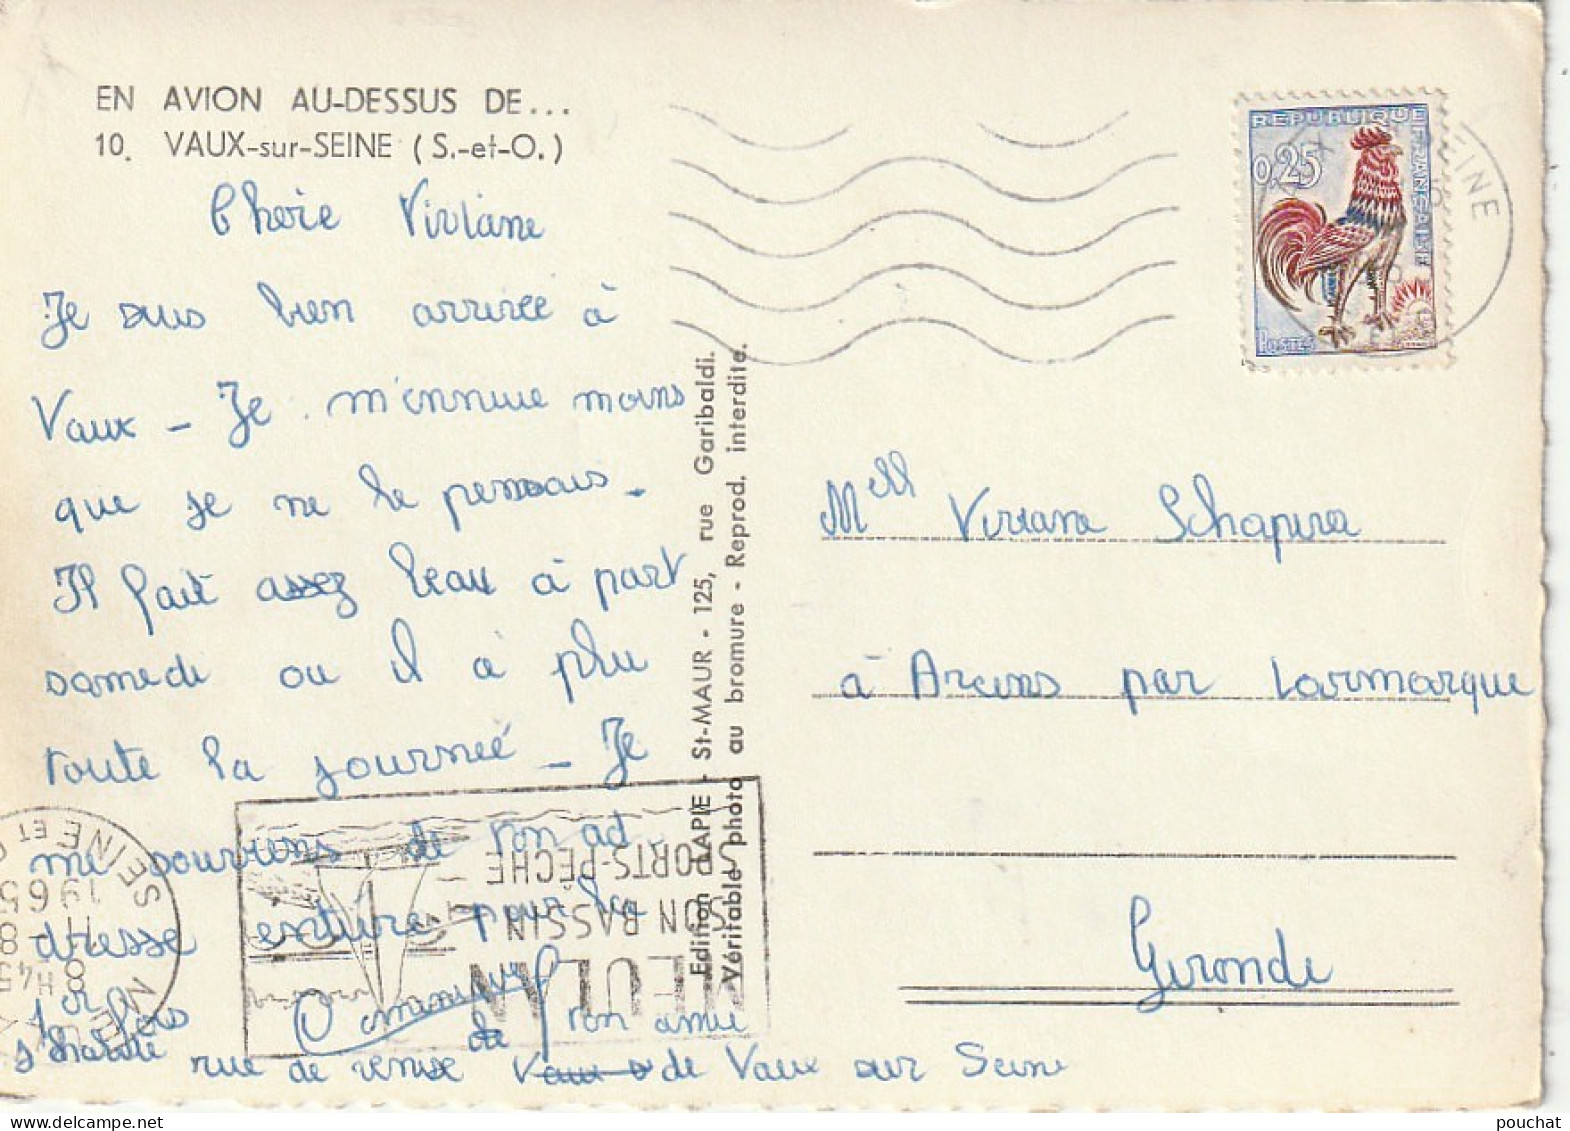 EN AVION AU-DESSUS DE...
10. VAUX-sur-SEINE (S.-et-O.)
Chère Viviane
Je suis bien arrivée à
Vaux - Je m'ennuie moins
que je ne le pensais -
Il fait assez beau à part
samedi ou il a plu
toute la journeé - Je
me souviens de ton ad
dresse entière pour la
1er fois
de ton amie
J'habite rue de
de Vaux sur Seine
Edition LAPIE - St-MAUR - 125, rue Garibaldi.
Véritable photo au bromure - Reprod. interdite.
REPUBLIQUE FRANÇAISE
0,25
POSTES
SEINE
Mell Viviane Schapira
à Arcins par Larmarque
Gironde
MEULAN
SON BASSIN
SPORTS-PÊCHE
SEINE ET
8 H 45
11 - 8
1965
pouchat